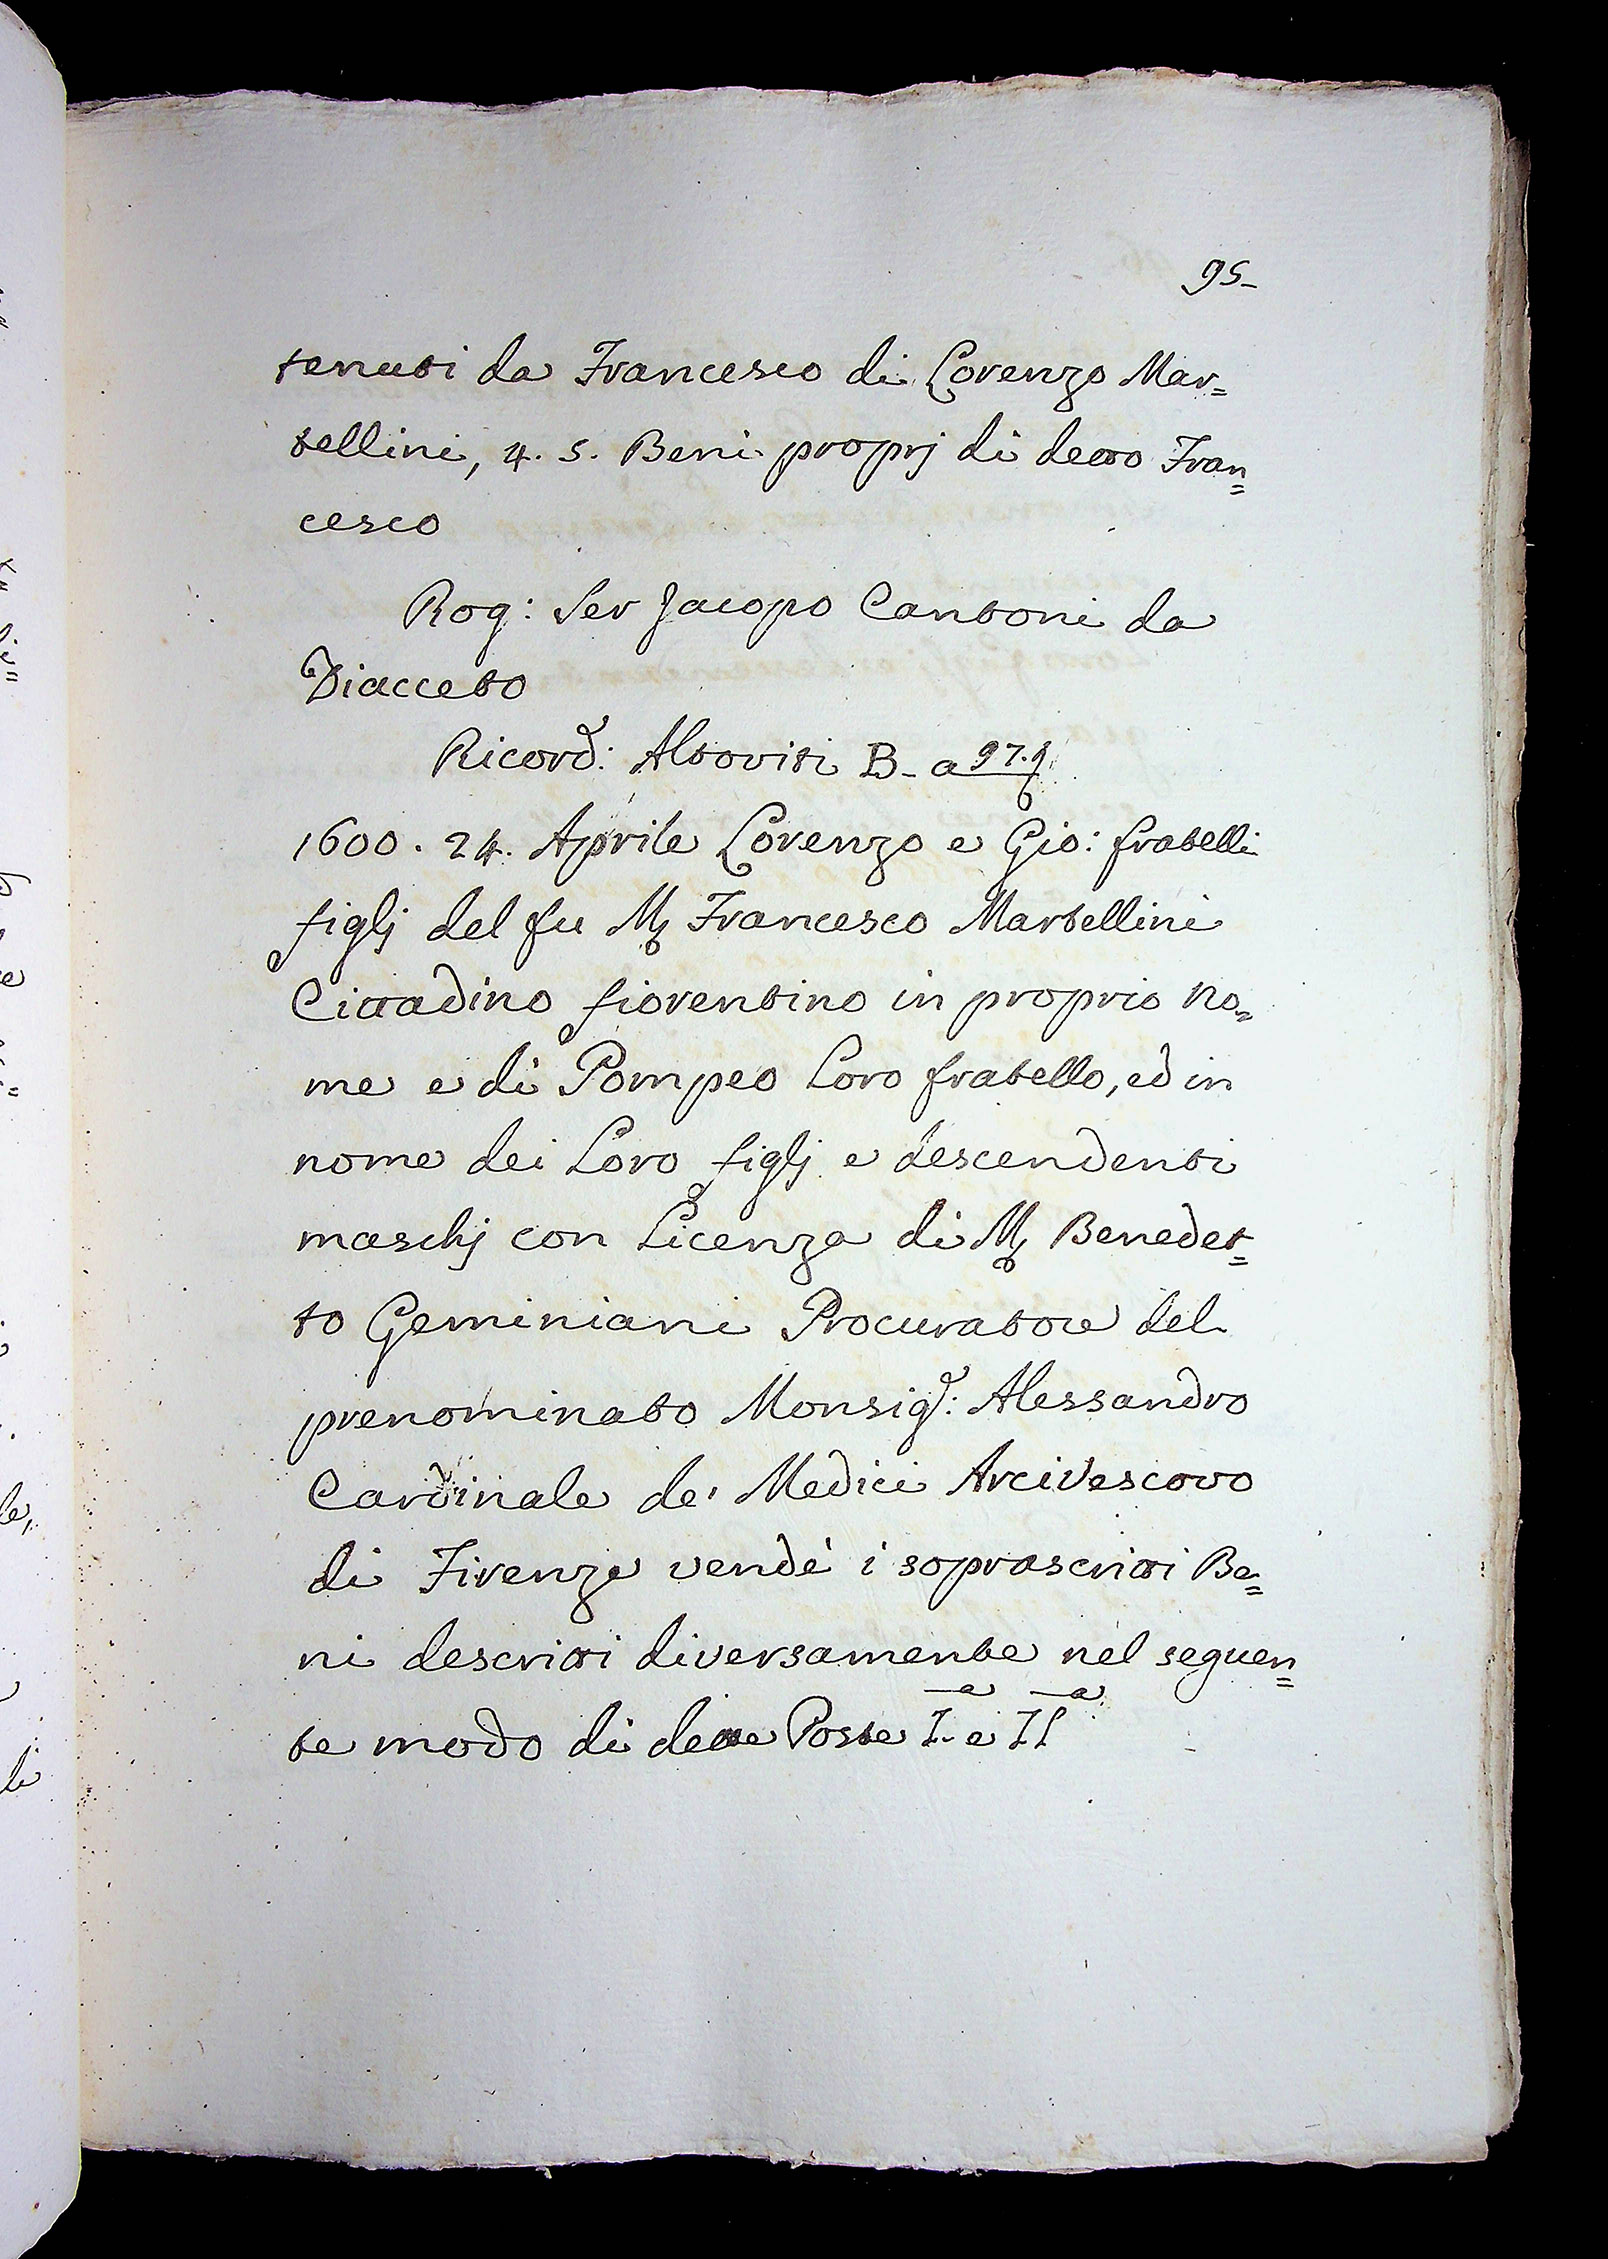 95-
tenuti da Francesco di Lorenzo Mar=
tellini, 4. 5. Beni proprj di detto Fran=
cesco
Rog: Ser Jacopo Cantoni da
Diacceto
Ricord: Altoviti B- a 97.
1600. 24. Aprile Lorenzo e Gio: fratelli
figlj del fu M Francesco Martellini
Cittadino fiorentino in proprio no=
me e di Pompeo Loro fratello, ed in
nome dei Loro figlj e descendenti
maschj con Licenza di M Benedet=
to Geminiani Procuratore del
prenominato Monsig: Alessandro
Cardinale de' Medici Arcivescovo
di Firenze vendè i soprascritti Be=
ni descritti diversamente nel seguen=
te modo di dette Poste I.a e II.a